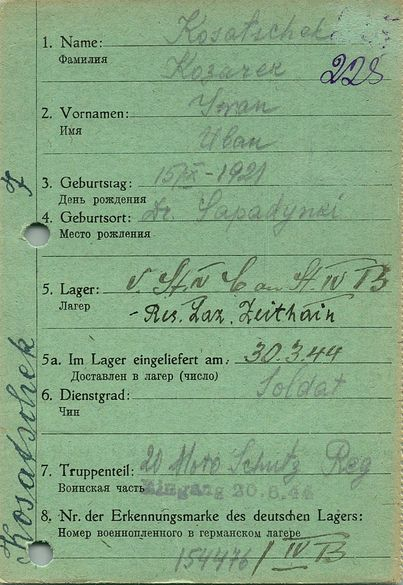 1. Name: Kosatschek
Фамилия
228
2. Vornamen: Iwan
Имя
Иван
3. Geburtstag: 15/IX - 1921
День рождения
4. Geburtsort: Dr. Sapadynzi
Место рождения
5. Lager: v. St. IV C an St. IV B
Лагер
- Res. Laz. Zeithain
5a. Im Lager eingeliefert am: 30.3.44
Доставлен в лагер (число)
6. Dienstgrad: Soldat
Чин
7. Truppenteil: 20 Moto Schutz Reg
Воинская часть Eingang 20.6.44
8. Nr. der Erkennungsmarke des deutschen Lagers:
Номер военнопленного в германском лагере
154476 / IV B
Kosatschek J